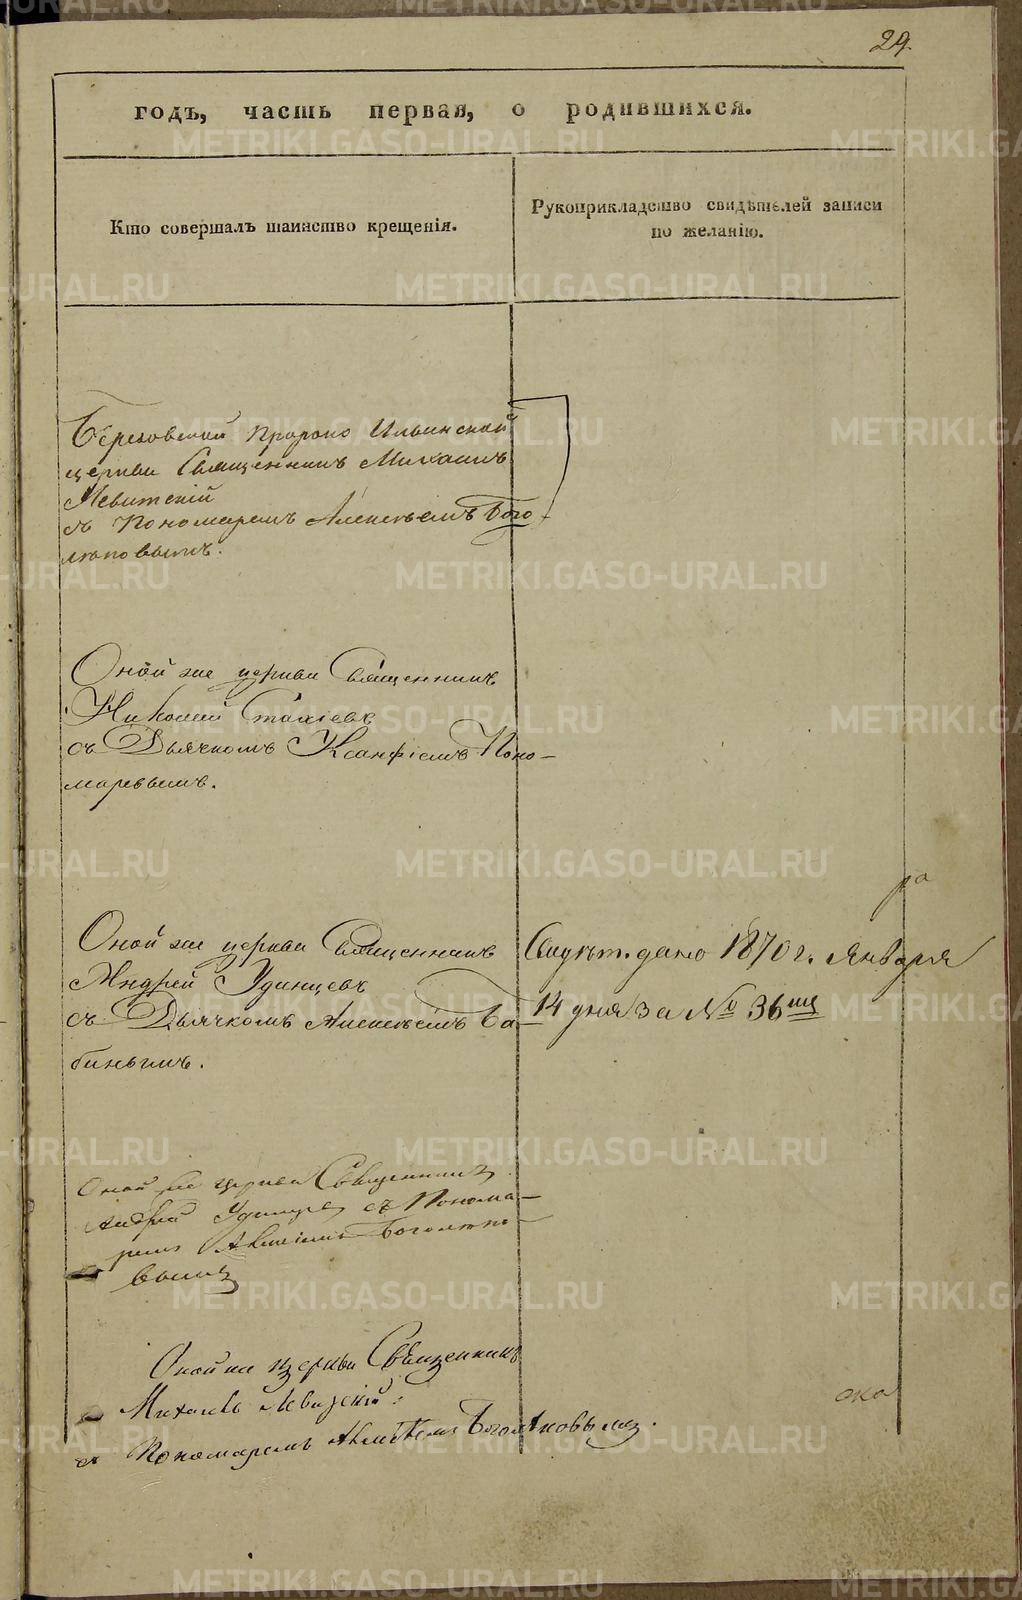 29.
годъ, часть первая, о родившихся.
Кто совершалъ таинство крещенія.
Рукоприкладство свидѣтелей записи
по желанію.
Березовской Пророко Ильинской
церкви Священникъ Михаилъ
Левитскій
съ Пономаремъ Алексѣемъ Бого-
люповымъ.
Оной же церкви Священникъ
Николай Стахіевъ
съ Дьячкомъ Ксанфіемъ Поно-
маревымъ.
ра
Оной же церкви Священникъ
Андрей Удинцевъ
съ Дьячкомъ Алексѣемъ Ба-
бинымъ.
Свидѣт. дано 1870 г. Января
14 дня за № 36
Оной же церкви Священникъ
Андрей Удинцевъ съ Понома-
ремъ Алексіемъ Боголюпо-
вымъ
Оной же церкви Священникъ
Михаилъ Левицкій
съ Пономаремъ Алексѣемъ Боголюповымъ.
ока
METRIKI.GASO-URAL.RU